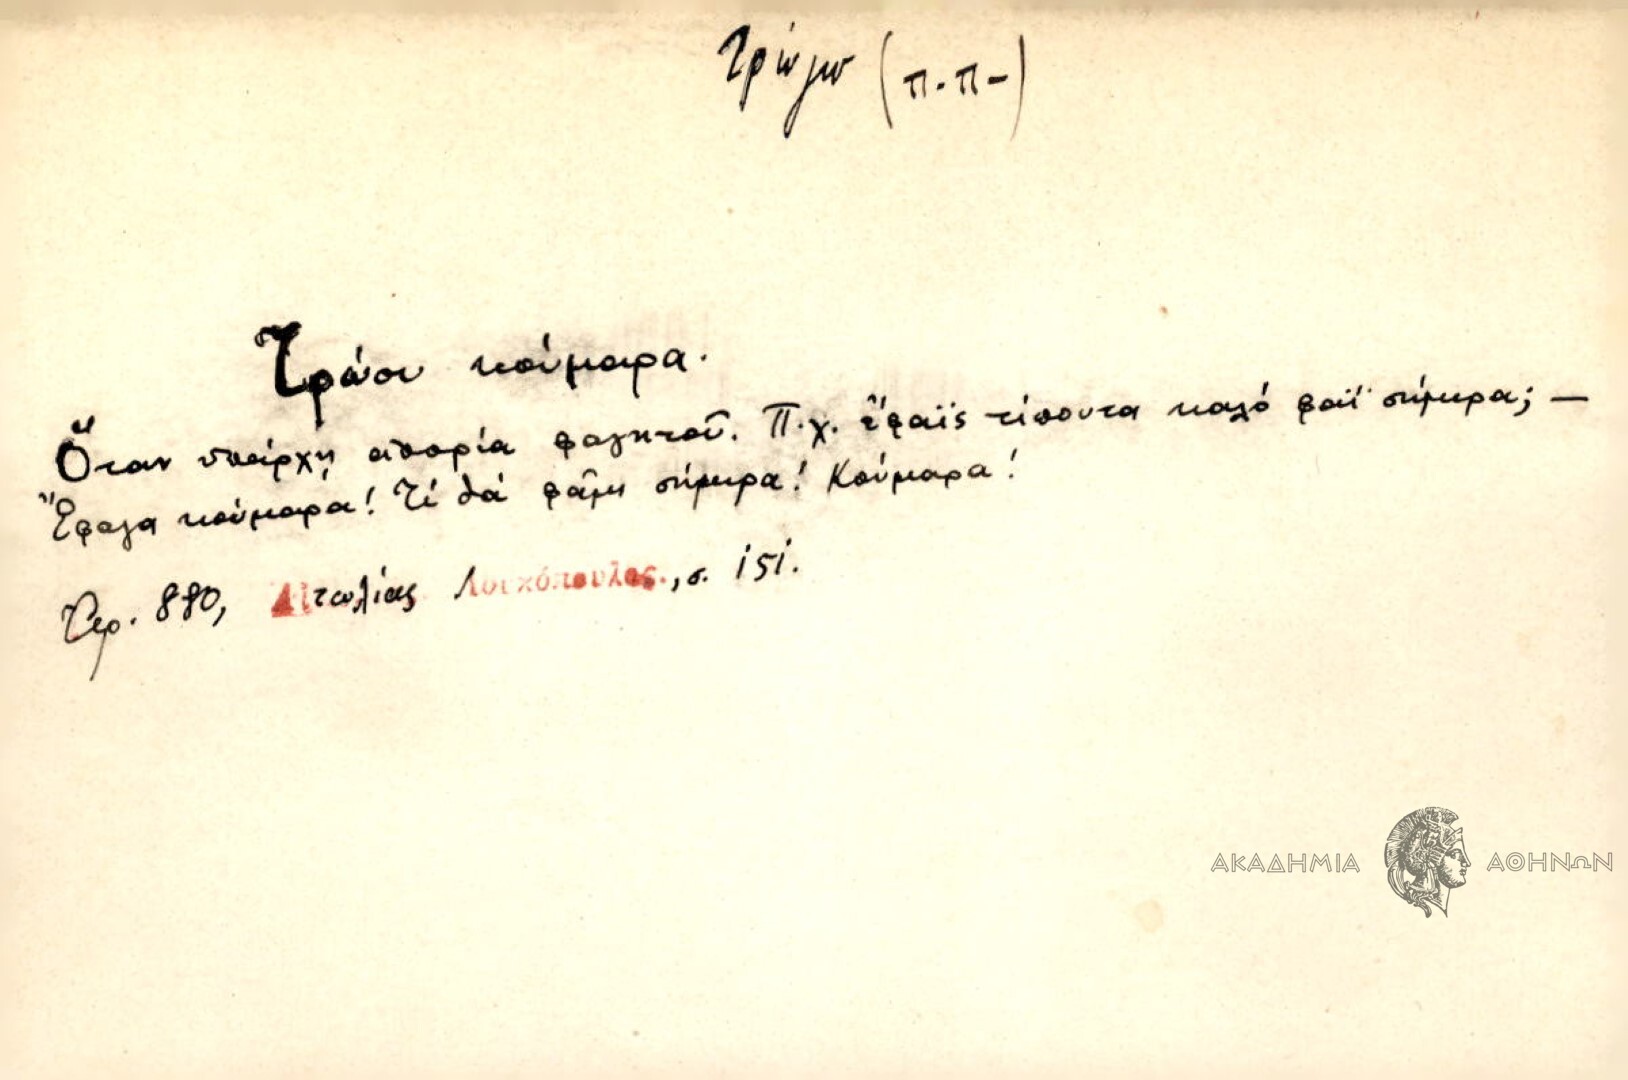 Τρώγω (π.π-)
Τρώου κούμαρα.
Ὅταν ὑπάρχῃ ἀπορία φαγητοῦ. Π.χ. ἔφαϊς τίπουτα καλό φαΐ σήμιρα; —
Ἔφαγα κούμαρα! Τί θά φᾶμι σήμιρα! Κούμαρα!
880, Αἰτωλίας Λουκόπουλος., σ. 151.
ΑΚΑΔΗΜΙΑ ΑΘΗΝΩΝ